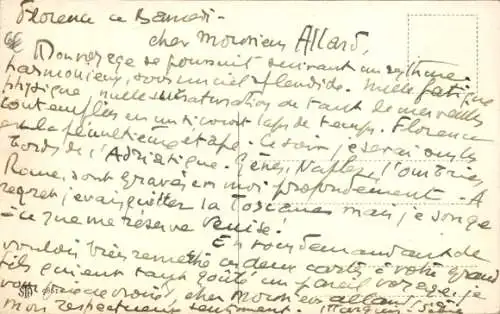 Florence ce Samedi -
cher Monsieur Allard,
Mon voyage se poursuit suivant un rythme
harmonieux, sous un ciel splendide. Nulle fatigue
physique nulle saturation de tant de merveilles
contemplées en un si court laps de temps. Florence
est la étape. Ce soir, je serai sur les
bords de l'Adriatique. Gênes, Naples, l'Ombrie,
Rome, sont gravés en moi profondément - A
regret je vais quitter la Toscane mais je songe
à ce que me réserve Venise!
En vous demandant de
vouloir bien remettre ces deux cartes à votre grand
fils qui eut tant goûté un pareil voyage, je
vous prie de croire, cher Monsieur Allard, à
mon respectueux sentiment.